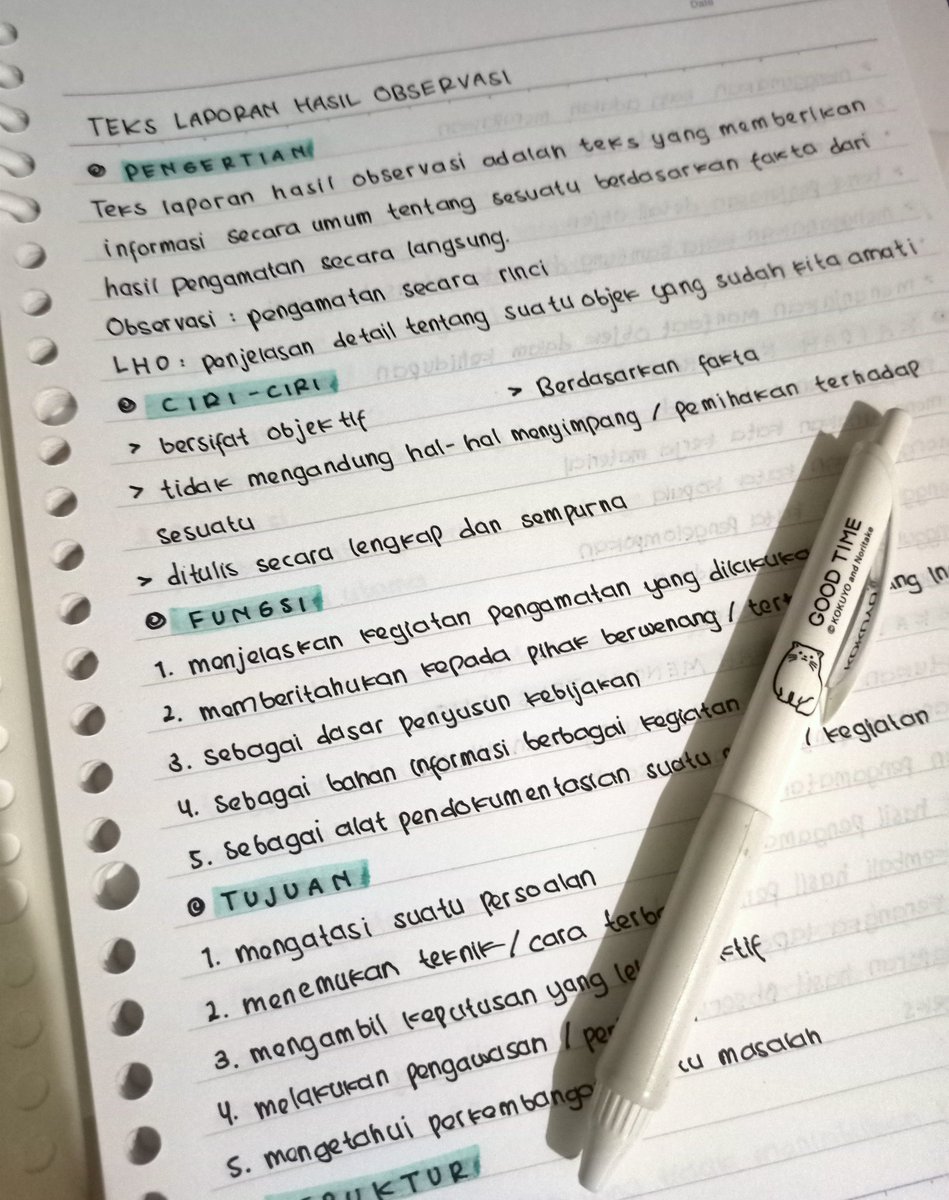 Date
TEKS LAPORAN HASIL OBSERVASI
PENGERTIAN
Teks laporan hasil observasi adalah teks yang memberikan
informasi secara umum tentang sesuatu berdasarkan fakta dari
hasil pengamatan secara langsung.
Observasi : pengamatan secara rinci
LHO : penjelasan detail tentang suatu objek yang sudah kita amati
CIRI-CIRI
> bersifat objektif > Berdasarkan fakta
> tidak mengandung hal-hal menyimpang / pemihakan terhadap
sesuatu
> ditulis secara lengkap dan sempurna
FUNGSI
1. menjelaskan kegiatan pengamatan yang
2. memberitahukan kepada pihak berwenang /
3. sebagai dasar penyusun kebijakan
4. sebagai bahan informasi berbagai kegiatan
5. sebagai alat pendokumentasian suatu / kegiatan
TUJUAN
1. mengatasi suatu persoalan
2. menemukan teknik / cara
3. mengambil keputusan yang
4. melakukan pengawasan /
5. mengetahui masalah
GOOD TIME
©KOKUYO and Noritake
KOKUYO